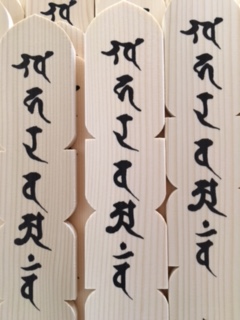 𑖏𑖮𑖨𑖪𑖀𑖪𑖽
𑖏𑖮𑖨𑖪𑖀𑖪𑖽
𑖏𑖮𑖨𑖪𑖀𑖪𑖽